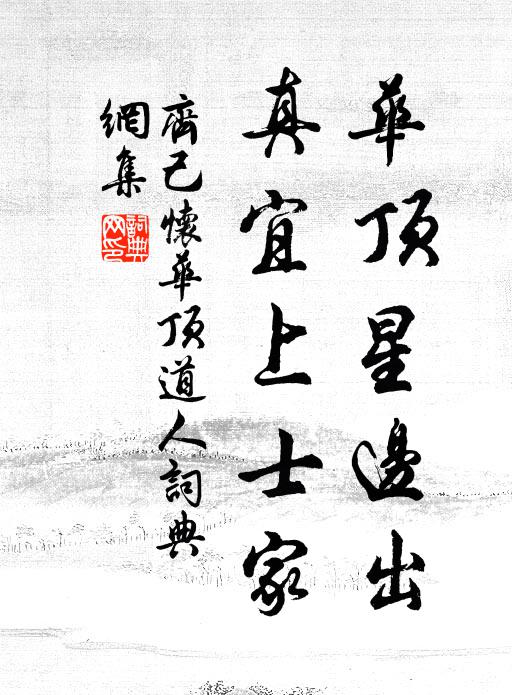 華頂星邊出
真宜上士家
齊己懷華頂道人詞典
網集
詞典
网印